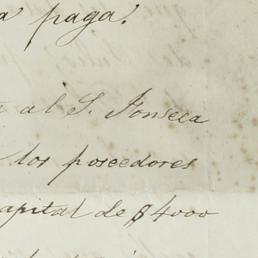 a paga.
al S. Fonseca
los poseedores
capital de $4000